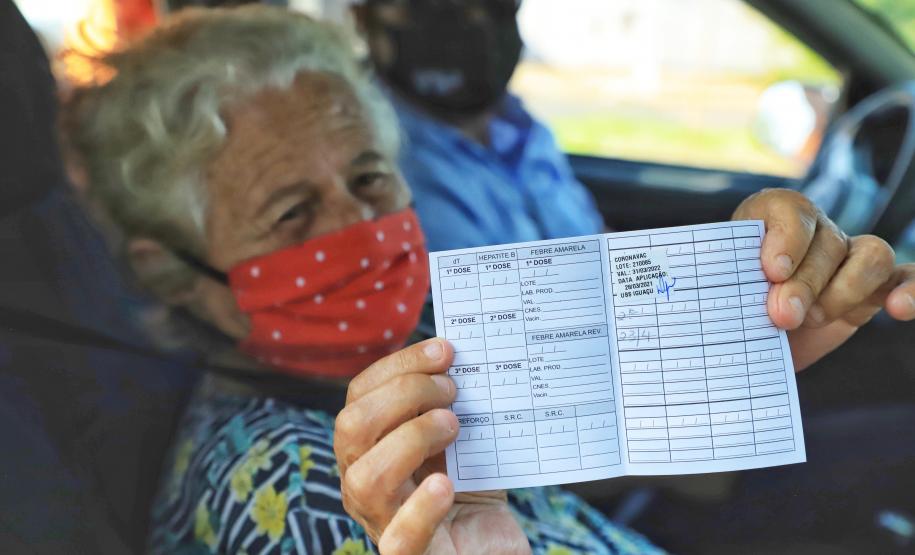 dT HEPATITE B FEBRE AMARELA
1ª DOSE 1ª DOSE 1ª DOSE
LOTE:
LAB. PROD.
VAL
CNES:
Vacin
2ª DOSE 2ª DOSE
FEBRE AMARELA REV.
LOTE:
LAB. PROD.
VAL
CNES:
Vacin
3ª DOSE 3ª DOSE
REFORÇO S.R.C. S.R.C.
CORONAVAC
LOTE: 210085
VAL: 31/03/2022
DATA APLICAÇÃO:
28/03/2021
UBS IGUAÇU
23/4